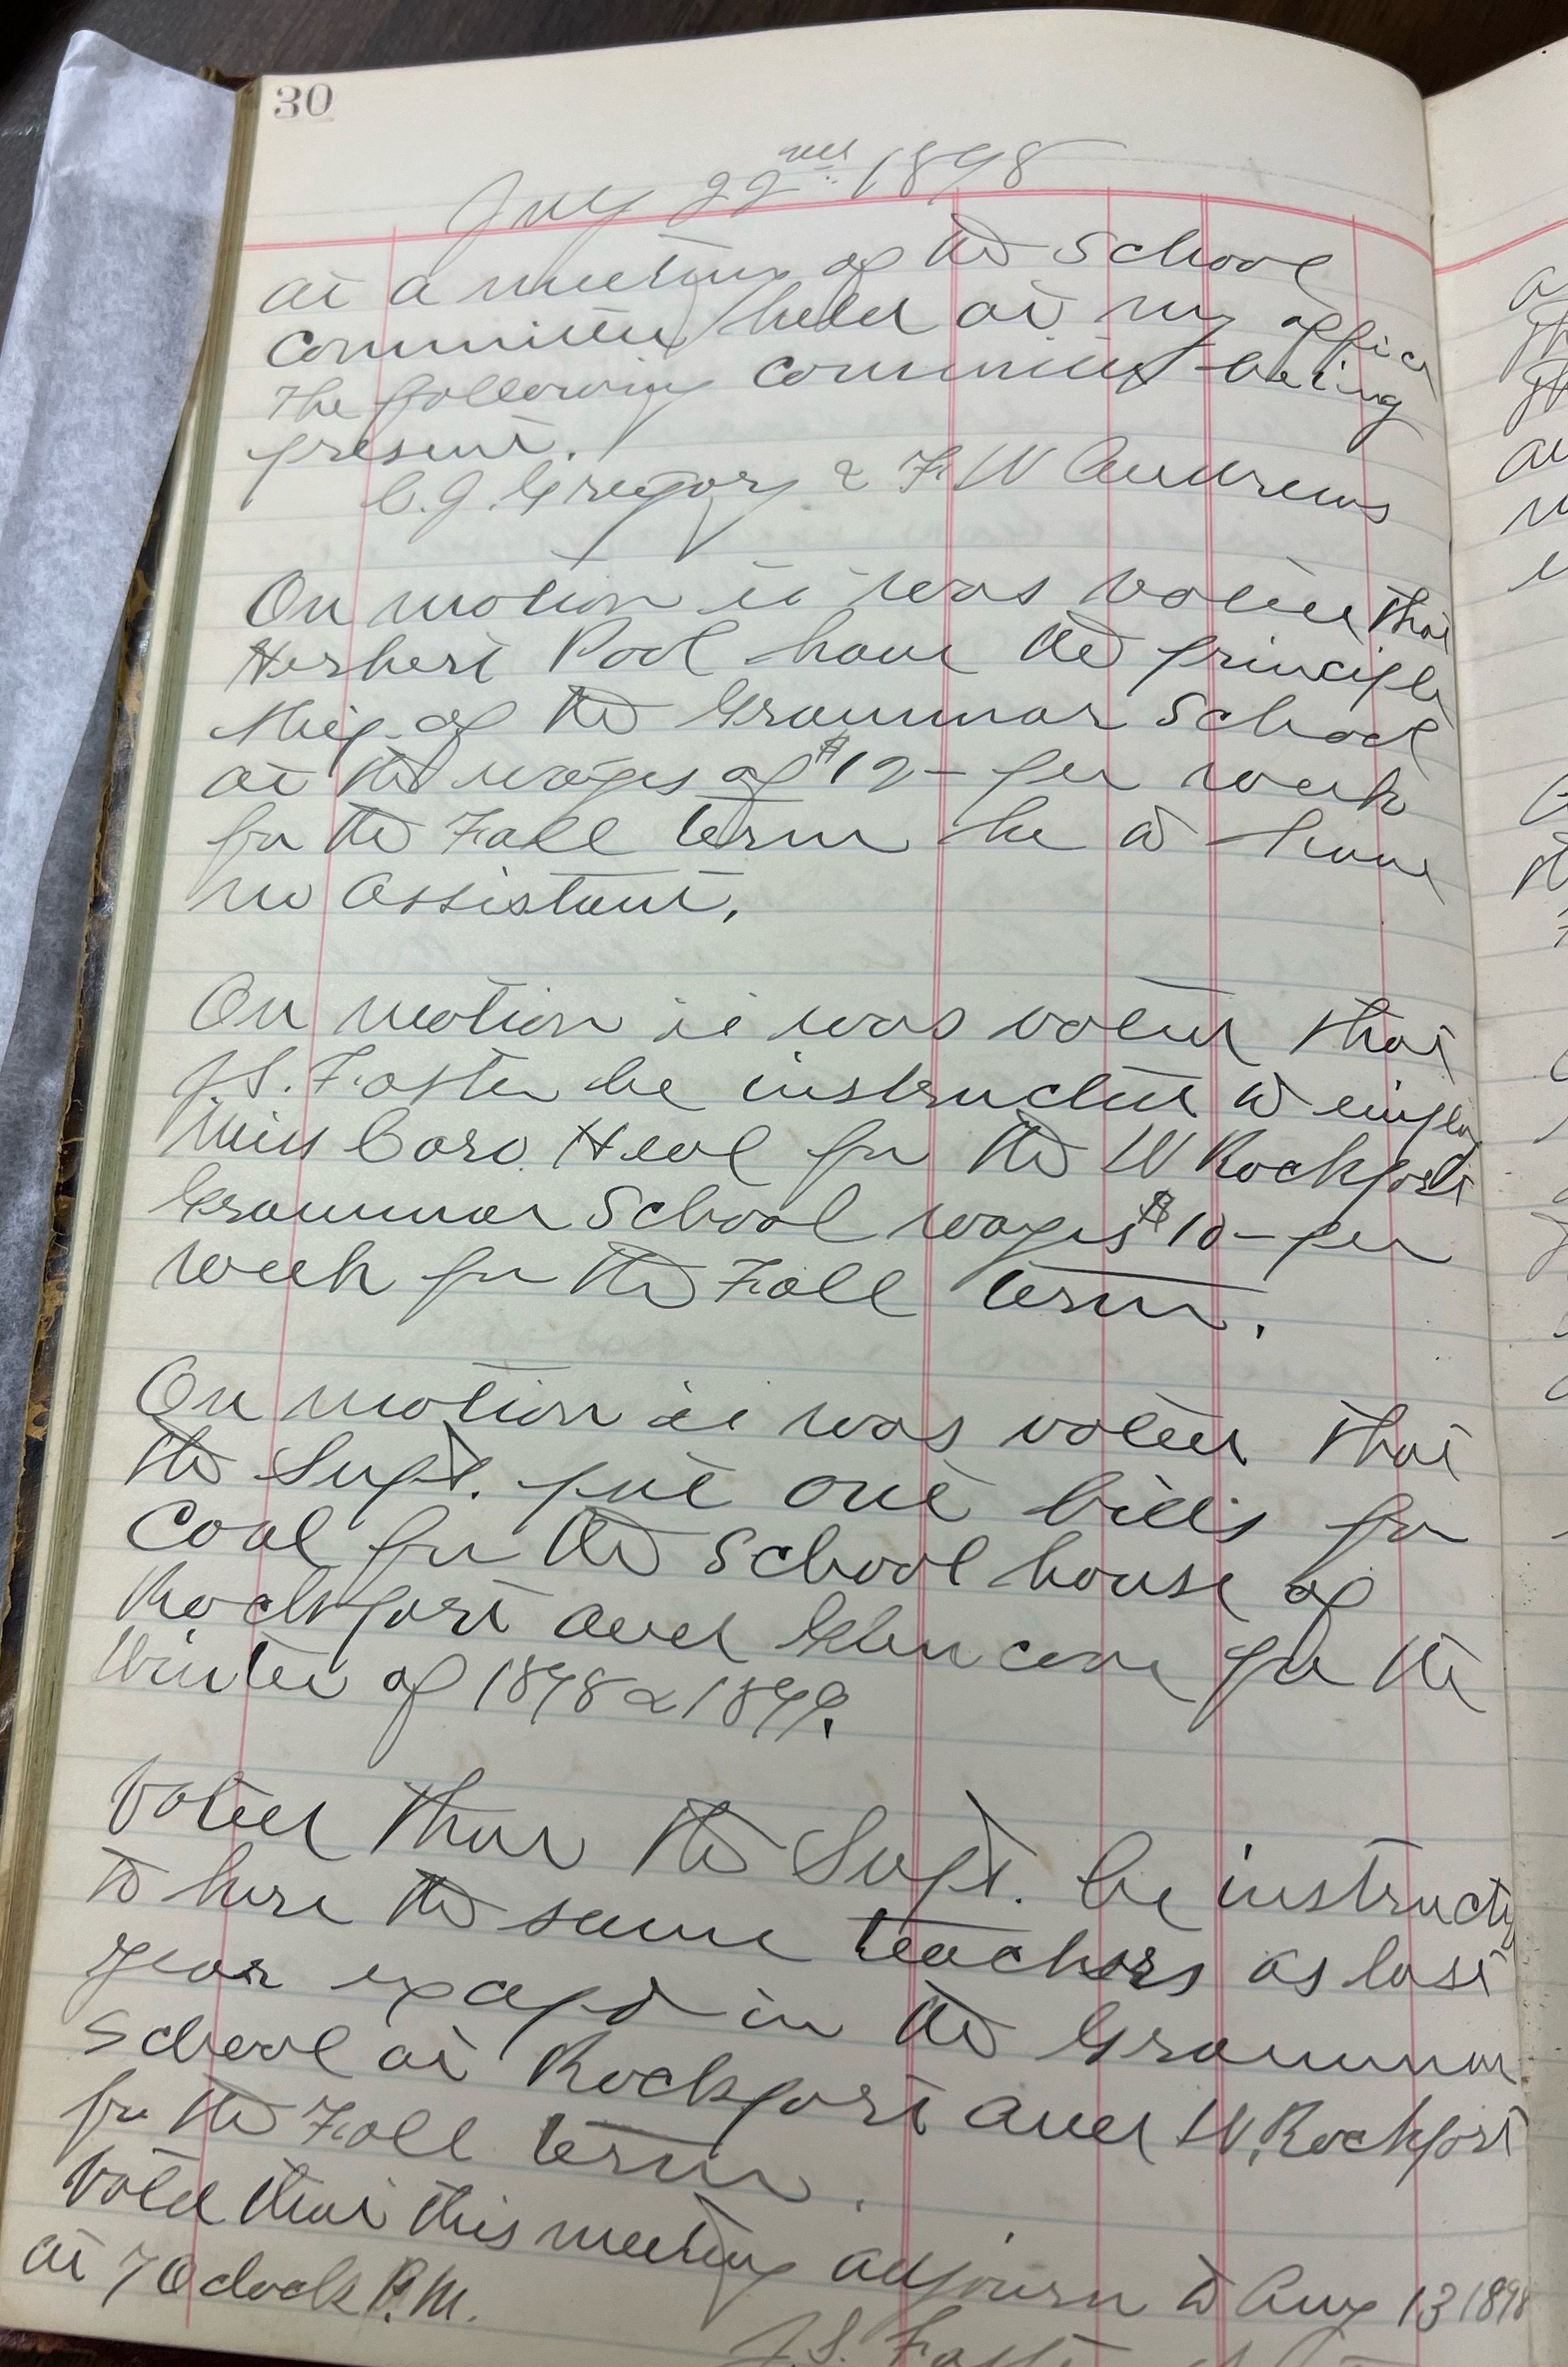 30
July 22nd 1898
at a meeting of the School
Committee held at my office
the following Committee being
present.
C. J. Gregory & F. W Andrews
On motion it was voted that
Herbert Pool have the principle
ship of the Grammar School
at the wages of $12- per week
for the Fall term he to have
no assistant.
On motion it was voted that
J S. Foster be instructed to employ
Miss Caro. Heal for the W Rockport
Grammar School wages $10- per
week for the Fall term.
On motion it was voted that
the Supt. put out bids for
Coal for the School house of
Rockport and Glencove for the
Winter of 1898 & 1899.
Voted that the Supt. be instructed
to hire the same teachers as last
year except in the Grammar
School at Rockport and W. Rockport
for the Fall term.
Voted that this meeting adjourn to Aug 13 1898
at 7 Oclock P.M.
J. S. Foster